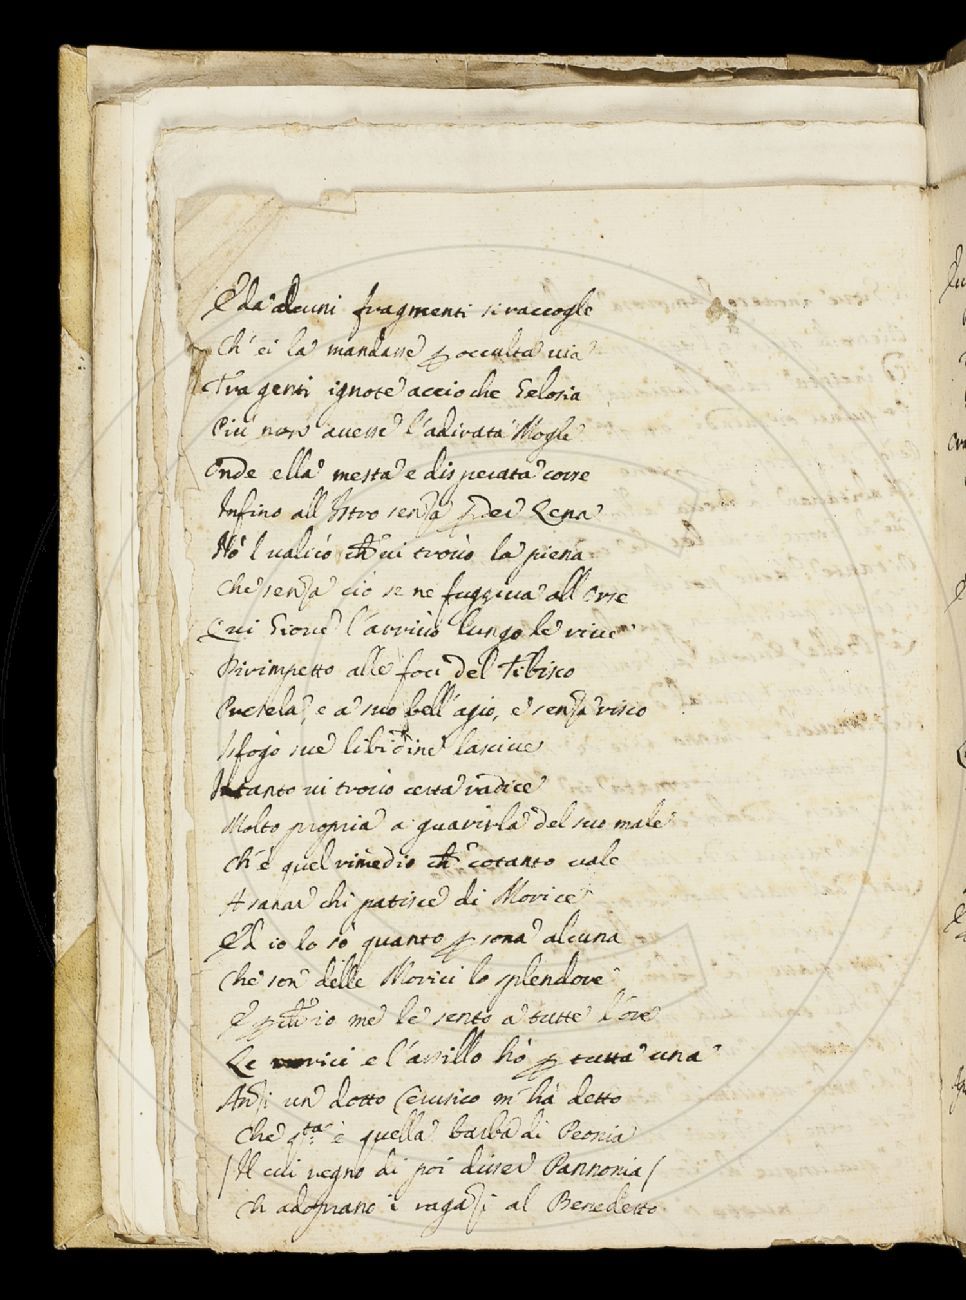 E da alcuni fragmenti si raccogle
Ch' ei la mandasse p occulta via
Tra genti ignote accio che Gelosia
Piu non avesse l'adirata Mogle
Onde ella mesta e disperata corse
Infino all Istro senza
Nò l valicò ch vi trovò la piena
Che senza ciò se ne fuggiva all Orse
Qui Giove l'arrivò lungo le rive
Dirimpetto alle foci del Tibisco
Presela, e a suo bell'agio, e senza risco
Sfogò sue libidine lascive
Intanto vi trovò certa radice
Molto propria a guarirla del suo male
Ch'è quel rimedio ch cotanto vale
A sanar chi patisce di Morice
Ed io lo sò quanto p sona alcuna
Che son delle Morici lo splendore
E io me le sento a tutte l'ore
Le morici e l'assillo hò p tutta una
Anzi un dotto Cerusico m'ha detto
Che qta è quella barba di Peonia
/Il cui regno di poi dissea Pannonia/
Ch adoprano i ragazzi al Benedetto